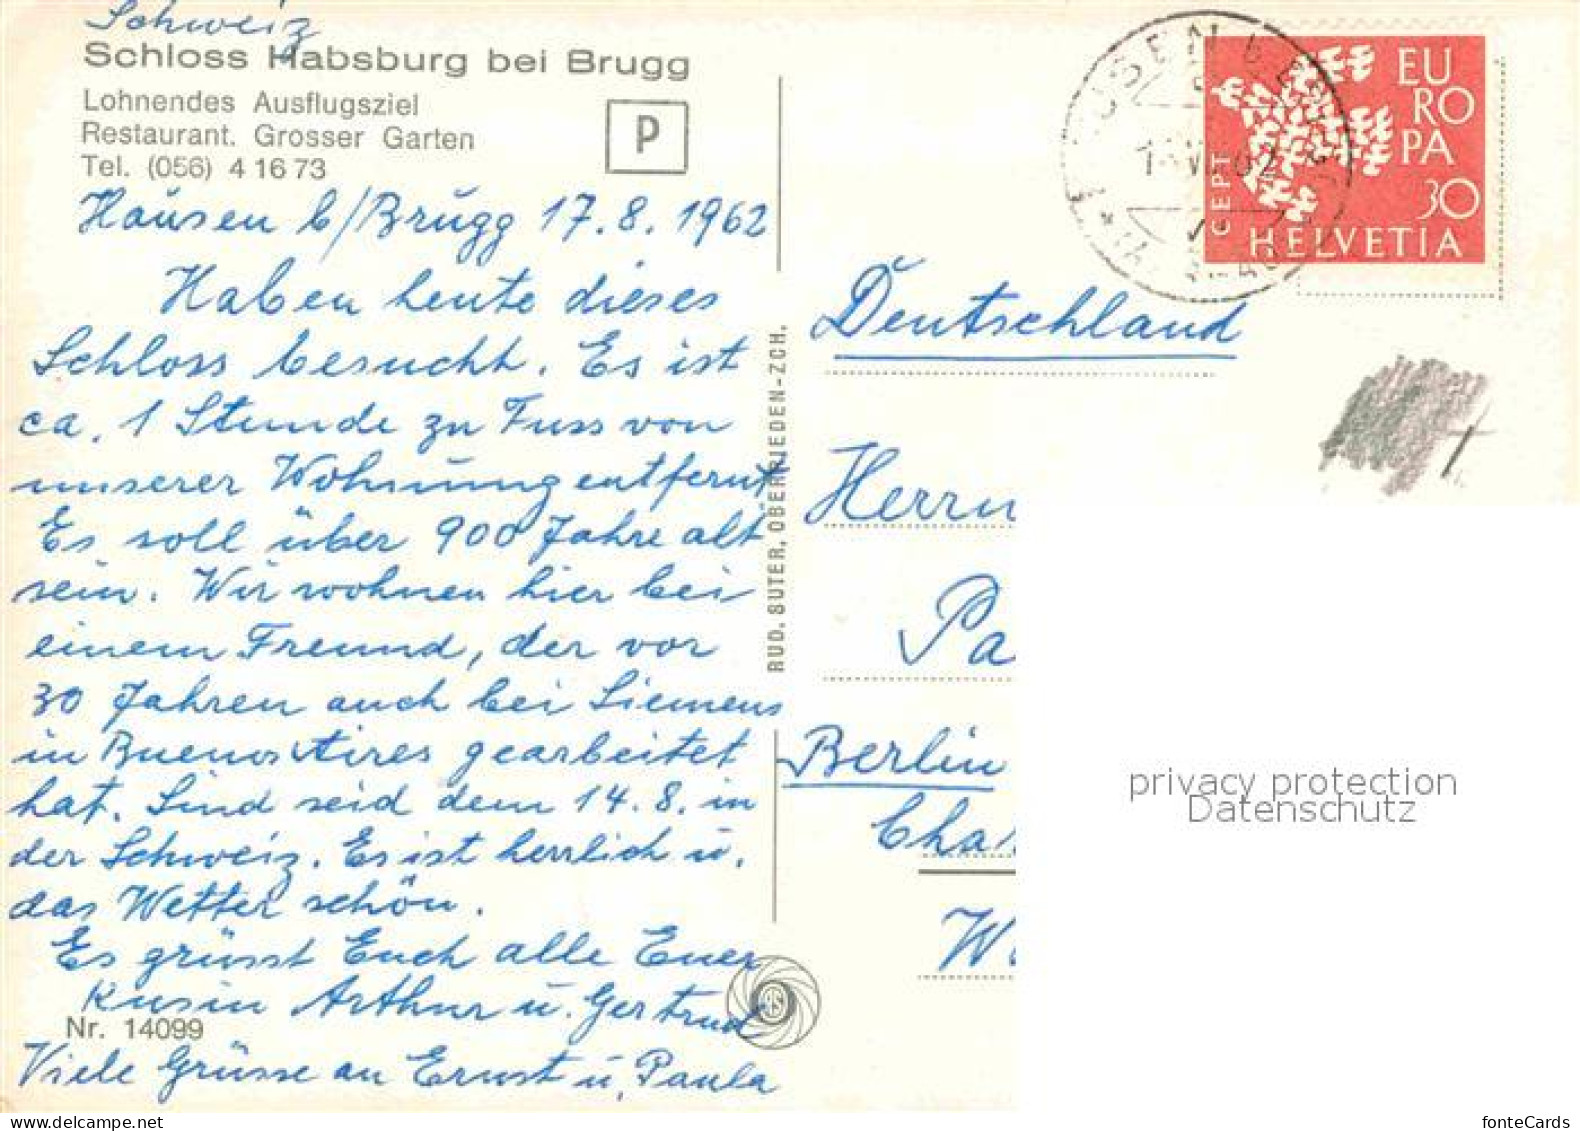 Schweiz
Schloss Habsburg bei Brugg
Lohnendes Ausflugsziel
Restaurant. Grosser Garten
Tel. (056) 4 16 73
P
Hausen b/Brugg 17.8.1962
Haben heute dieses
Schloss besucht. Es ist
ca. 1 Stunde zu Fuss von
unserer Wohnung entfernt
Es soll über 900 Jahre alt
sein. Wir wohnen hier bei
einem Freund, der vor
30 Jahren auch bei Siemens
in Buenos Aires gearbeitet
hat. Sind seid dem 14.8. in
der Schweiz. Es ist herrlich u.
das Wetter schön.
Es grüsst Euch alle Euer
Kusin Arthur u. Gertrud
Nr. 14099
Viele Grüsse an Ernst u. Paula
RUD. SUTER, OBERRIEDEN-ZCH.
EUROPA
CEPT
30
HELVETIA
Deutschland
Herrn
Pa
Berlin
Cha
W
privacy protection
Datenschutz
fonteCards